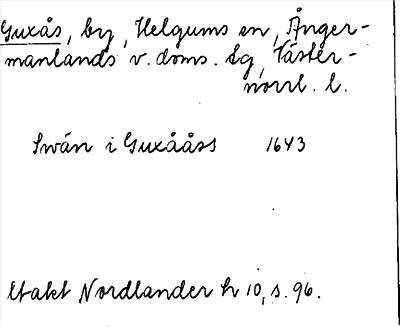 Guxås, by, Helgums sn, Ånger-
manlands v. doms. lg, Väster-
norrl. l.
Swän i Guxååss 1643
Utakt Nordlander h 10, s. 96.